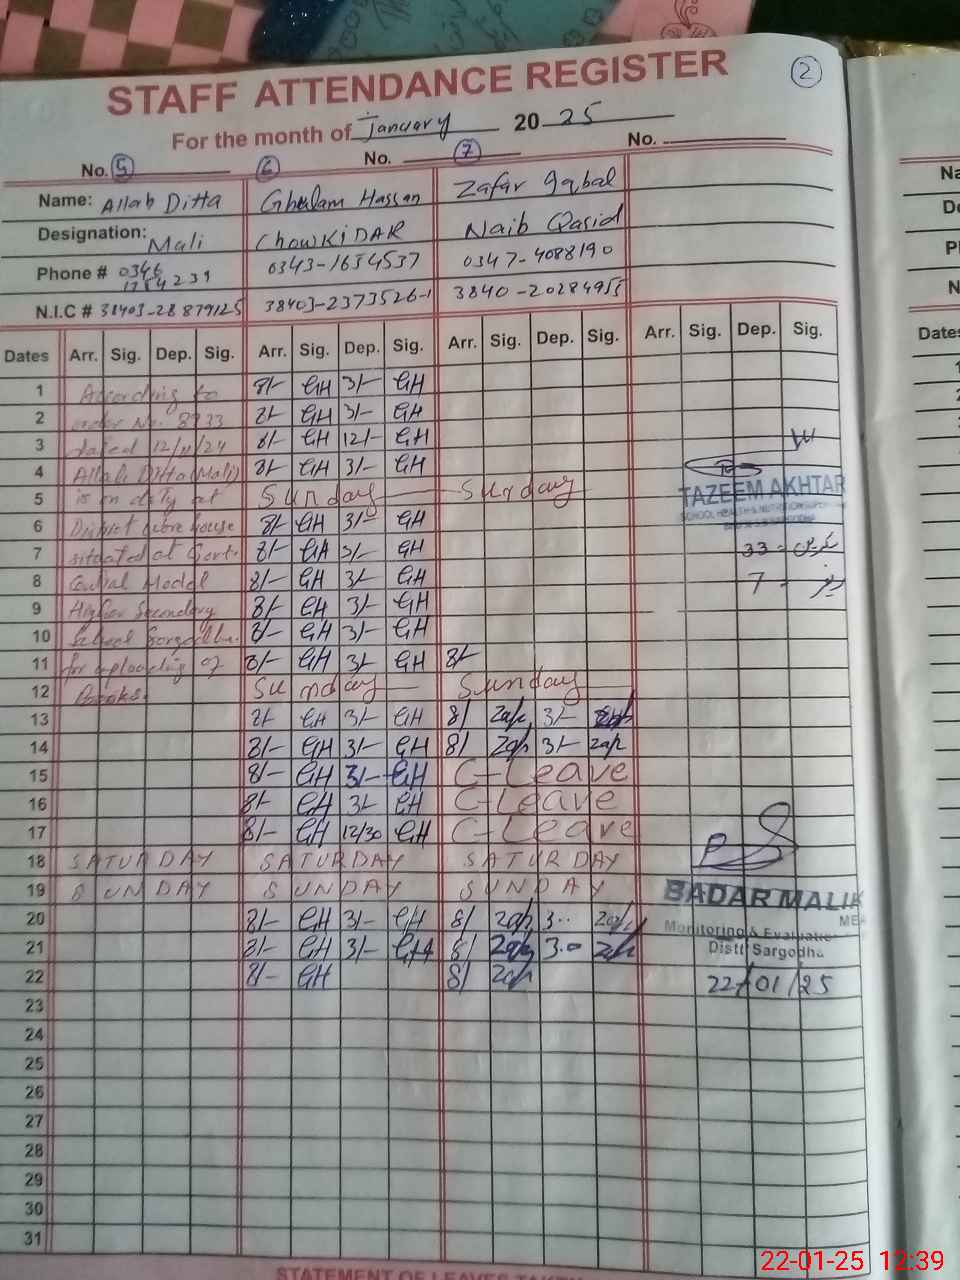 2
STAFF ATTENDANCE REGISTER
For the month of January 20 25
No. 5 6 No. 7 No.
Name: Allah Ditta Ghulam Hassan Zafar Iqbal
Designation: Mali ChowKiDAR Naib Qasid
Phone # 0346 1754239 0343-1634537 0347-4088190
N.I.C # 38403-28879125 38403-2373526-1 3840-2028495
Dates Arr. Sig. Dep. Sig. Arr. Sig. Dep. Sig. Arr. Sig. Dep. Sig. Arr. Sig. Dep. Sig.
1 According to 8/- GH 3/- GH
2 order No. 8933 8/- GH 3/- GH
3 dated 12/11/24 8/- GH 12/- GH
4 Allah Ditta (Mali) 8/- GH 3/- GH
TAZEEM AKHTAR
5 is on duty at Sunday Sunday
6 District ware house 8/- GH 3/- GH
7 situated at Govt. 8/- GH 3/- GH 33 -
8 Central Model 8/- GH 3/- GH 7 -
9 Higher Secondary 8/- GH 3/- GH
10 School Sargodha. 8/- GH 3/- GH
11 for uploading of 8/- GH 3/- GH 8/-
12 Books. Sunday Sunday
13 8/- GH 3/- GH 8/ Zap 3/- Zap
14 8/- GH 3/- GH 8/ Zap 3/- Zap
15 8/- GH 3/- GH C-Leave
16 8/- GH 3/- GH C-Leave
17 8/- GH 12/30 GH C-Leave
18 SATURDAY SATURDAY SATURDAY
19 SUNDAY SUNDAY SUNDAY
BADAR MALIK
MEA
20 8/- GH 3/- GH 8/ Zap 3.. Zap
Monitoring & Evaluation
21 8/- GH 3/- GH 8/ Zap 3.0 Zap
Distt Sargodha
22 8/- GH 8/ Zap 22/01/25
23
24
25
26
27
28
29
30
31
STATEMENT OF LEAVES TAKEN
Na
De
Ph
N
Dates
22-01-25 12:39